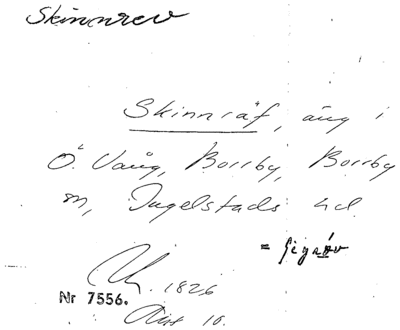 Skinnrev
Skinnräf, äng i
Ö. Vång, Borrby, Borrby
sn, Ingelstads hd
=
1826
Nr 7556.
10.